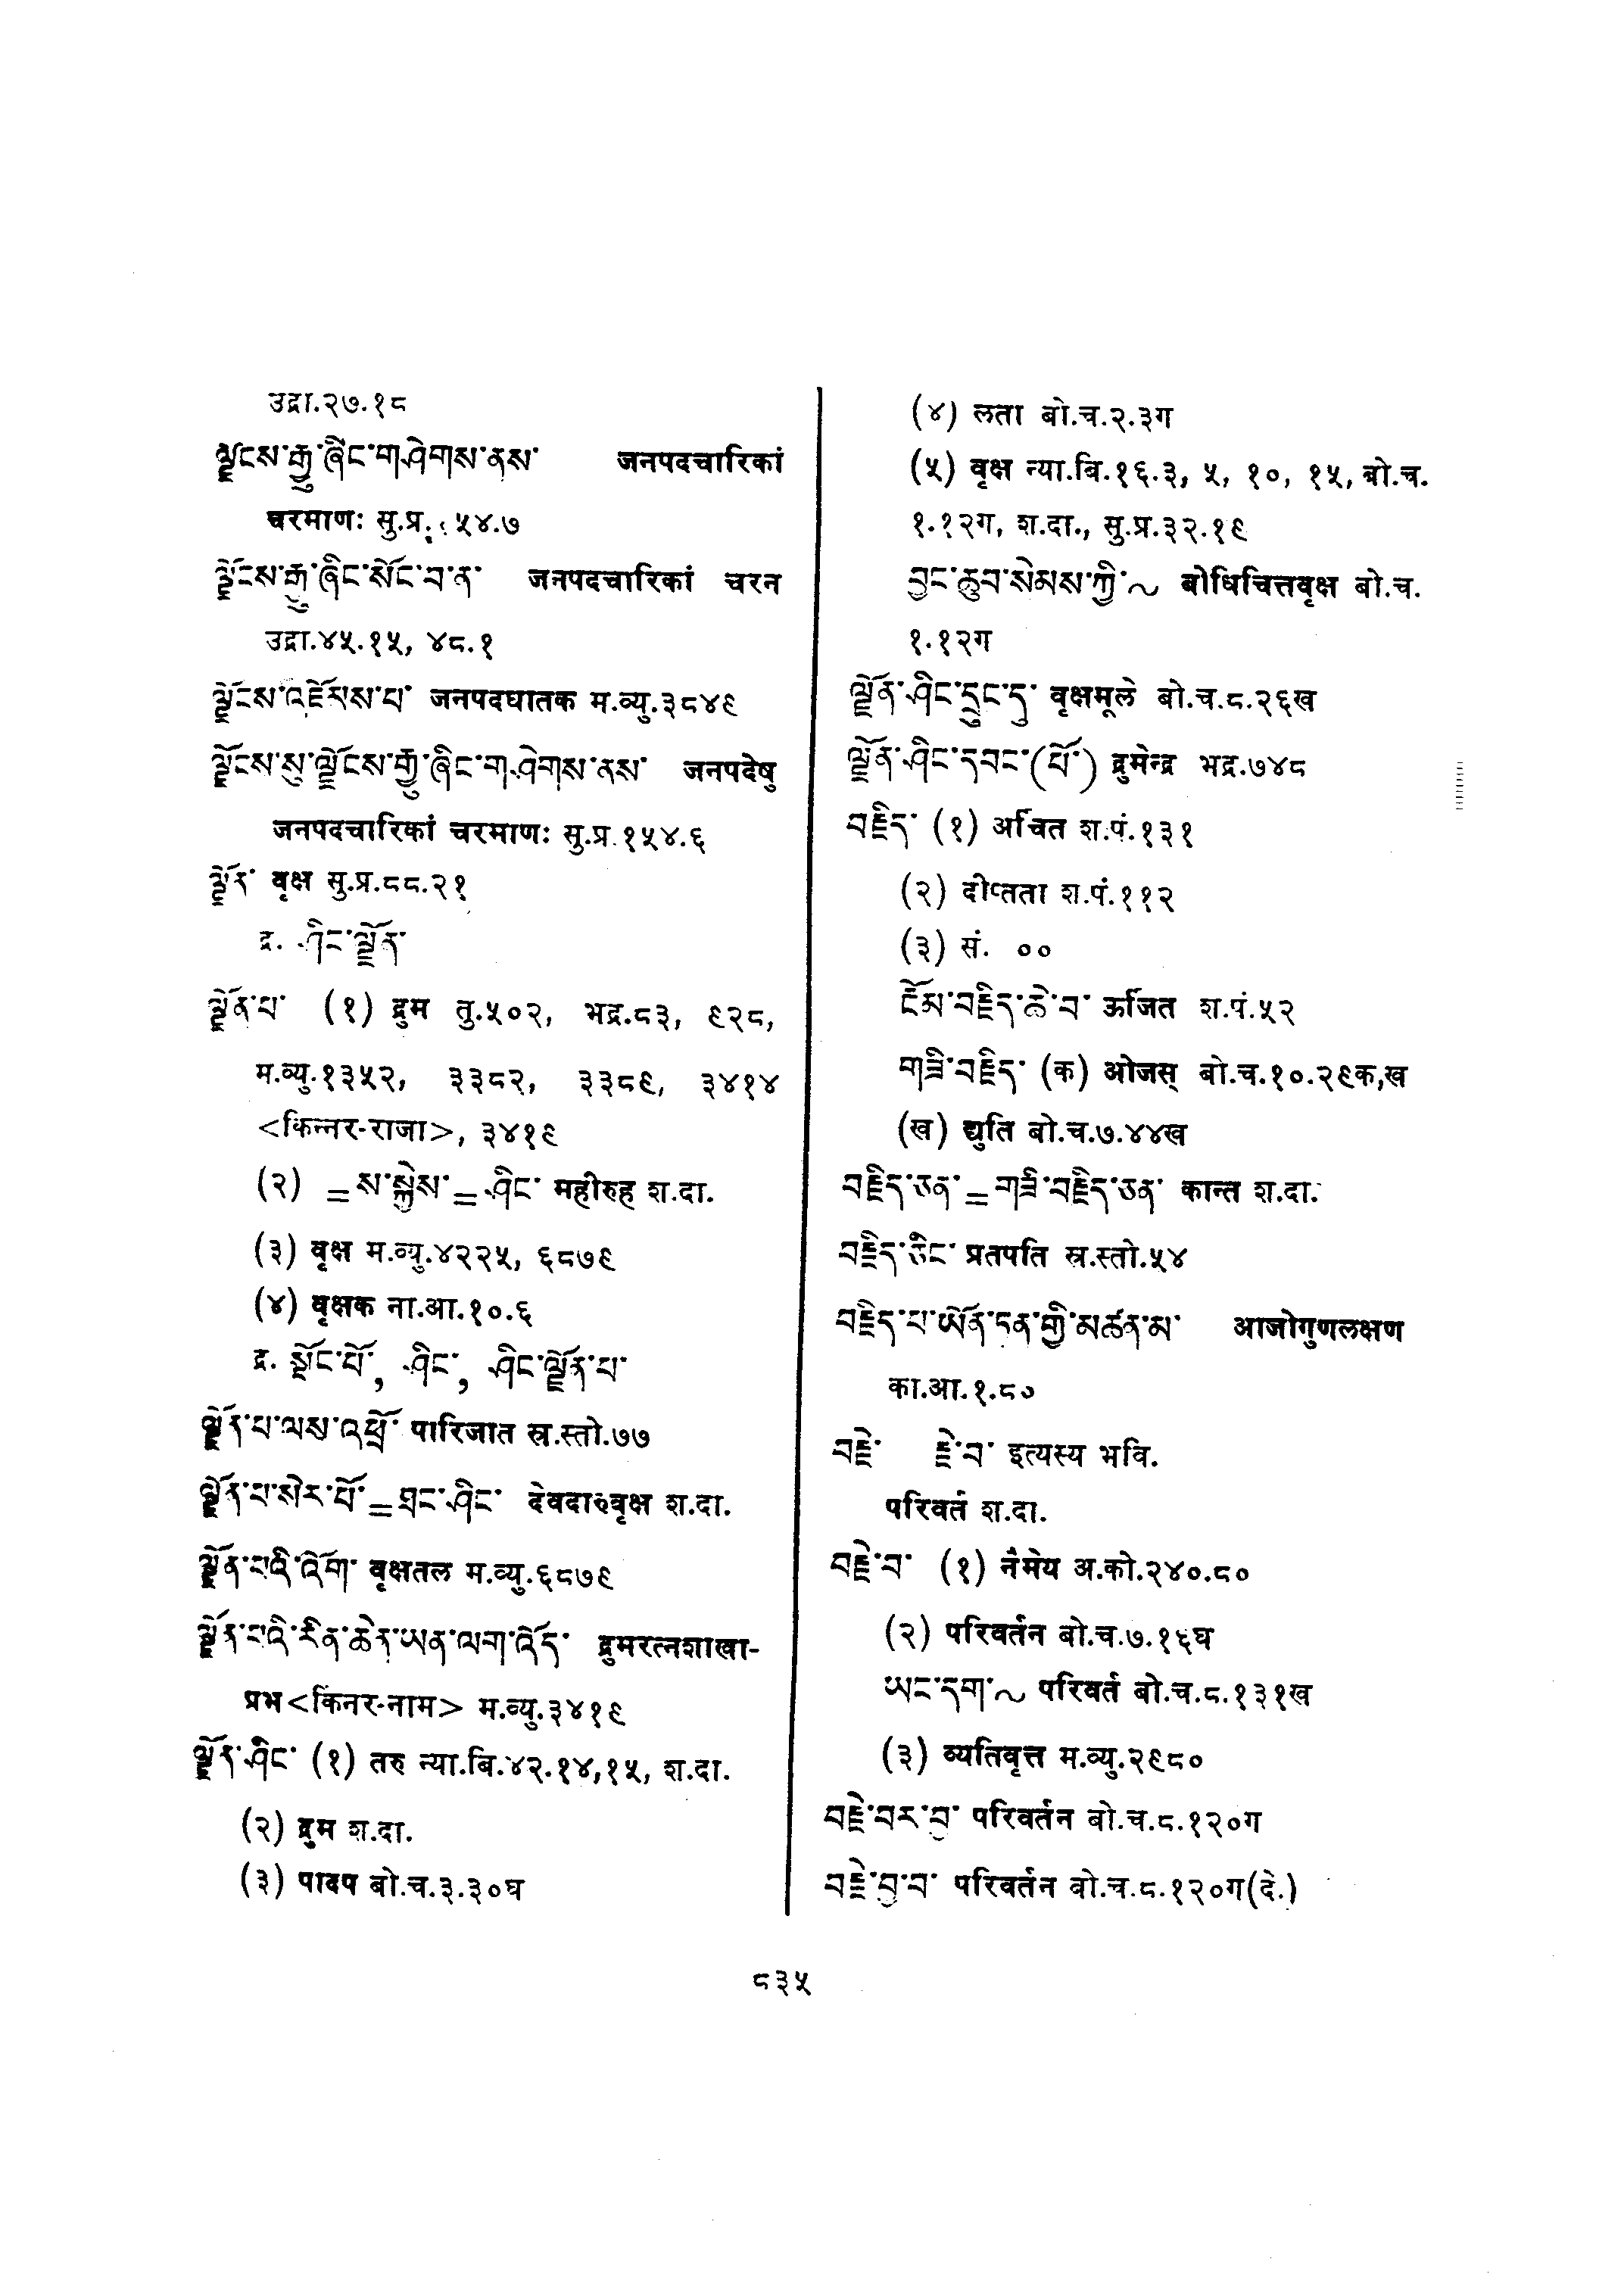 उद्रा.२७.१८
ལྗངས་རྒྱུ་ཞིང་གཤེགས་ནས་ जनपदचारिकां
चरमाणः सु.प्र. ५४.७
ལྗོངས་རྒྱུ་ཞིང་སོང་བ་ན་ जनपदचारिकां चरन
उद्रा.४५.१५, ४८.१
ལྗོངས་འཇོམས་པ་ जनपदघातक म.व्यु.३८४९
ལྗོངས་སུ་ལྗོངས་རྒྱུ་ཞིང་གཤེགས་ནས་ जनपदेषु
जनपदचारिकां चरमाणः सु.प्र.१५४.६
ལྗོན་ वृक्ष सु.प्र.८८.२१
द्र. ཤིང་ལྗོན་
ལྗོན་པ་ (१) द्रुम तु.५०२, भद्र.८३, ९२८,
म.व्यु.१३५२, ३३८२, ३३८९, ३४१४
<किन्नर-राजा>, ३४१९
(२) =ས་སྐྱེས་=ཤིང་ महीरुह श.दा.
(३) वृक्ष म.व्यु.४२२५, ६८७९
(४) वृक्षक ना.आ.१०.६
द्र. སྡོང་པོ་, ཤིང་, ཤིང་ལྗོན་པ་
ལྗོན་པ་ལས་འཕྲོ་ पारिजात स्र.स्तो.७७
ལྗོན་པ་སེར་པོ་=ཐང་ཤིང་ देवदारुवृक्ष श.दा.
ལྗོན་པའི་འོག་ वृक्षतल म.व्यु.६८७९
ལྗོན་པའི་རིན་ཆེན་ཡན་ལག་འོད་ द्रुमरत्नशाखा-
प्रभ<किंनर-नाम> म.व्यु.३४१९
ལྗོན་ཤིང་ (१) तरु न्या.बि.४२.१४,१५, श.दा.
(२) द्रुम श.दा.
(३) पादप बो.च.३.३०घ
(४) लता बो.च.२.३ग
(५) वृक्ष न्या.बि.१६.३, ५, १०, १५, बो.च.
१.१२ग, श.दा., सु.प्र.३२.१९
བྱང་ཆུབ་སེམས་ཀྱི་~ बोधिचित्तवृक्ष बो.च.
१.१२ग
ལྗོན་ཤིང་དྲུང་དུ་ वृक्षमूले बो.च.८.२६ख
ལྗོན་ཤིང་དབང་(པོ་) द्रुमेन्द्र भद्र.७४८
བརྗིད་ (१) अर्चित श.पं.१३१
(२) दीप्तता श.पं.११२
(३) सं. ००
ངོམ་བརྗིད་ཆེ་བ་ ऊर्जित श.पं.५२
གཟི་བརྗིད་ (क) ओजस् बो.च.१०.२९क,ख
(ख) द्युति बो.च.७.४४ख
བརྗིད་ཅན་=གཟི་བརྗིད་ཅན་ कान्त श.दा.
བརྗིད་ཅིང་ प्रतपति स्र.स्तो.५४
བརྗིད་པ་ཡོན་ཏན་གྱི་མཚན་མ་ आजोगुणलक्षण
का.आ.१.८०
བརྗེ་ རྗེ་བ་ इत्यस्य भवि.
परिवर्त श.दा.
བརྗེ་བ་ (१) नैमेय अ.को.२४०.८०
(२) परिवर्तन बो.च.७.१६घ
ཡང་དག་~ परिवर्त बो.च.८.१३१ख
(३) व्यतिवृत्त म.व्यु.२९८०
བརྗེ་བར་བྱ་ परिवर्तन बो.च.८.१२०ग
བརྗེ་བྱ་བ་ परिवर्तन बो.च.८.१२०ग(दे.)
८३५